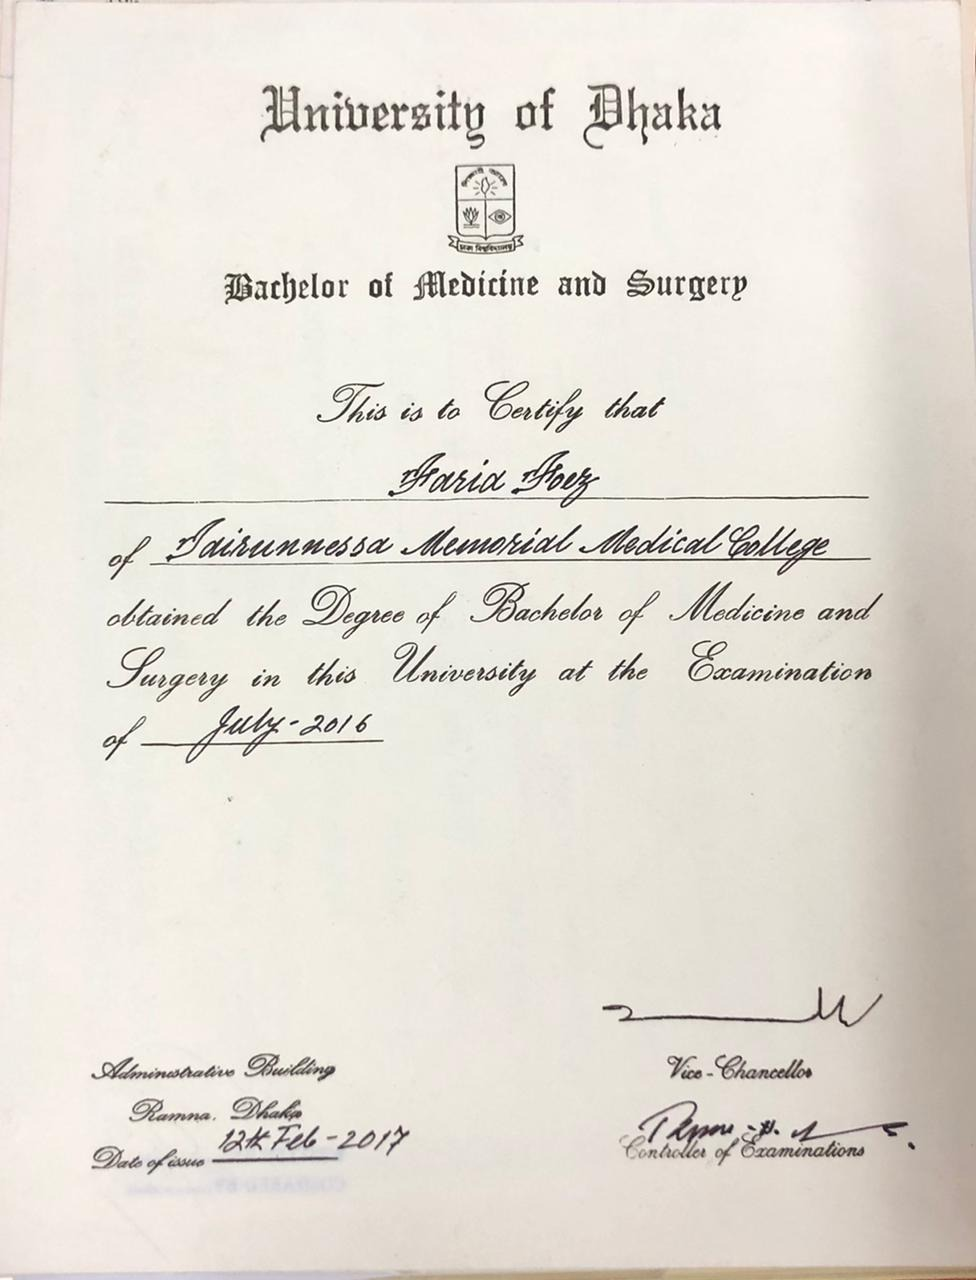 University of Dhaka
ঢাকা বিশ্ববিদ্যালয়
Bachelor of Medicine and Surgery
This is to Certify that
Farid Foez
of Tairunnessa Memorial Medical College
obtained the Degree of Bachelor of Medicine and
Surgery in this University at the Examination
of July-2016
Administrative Building
Ramna, Dhaka
Date of issue 12th Feb-2017
Vice-Chancellor
Controller of Examinations